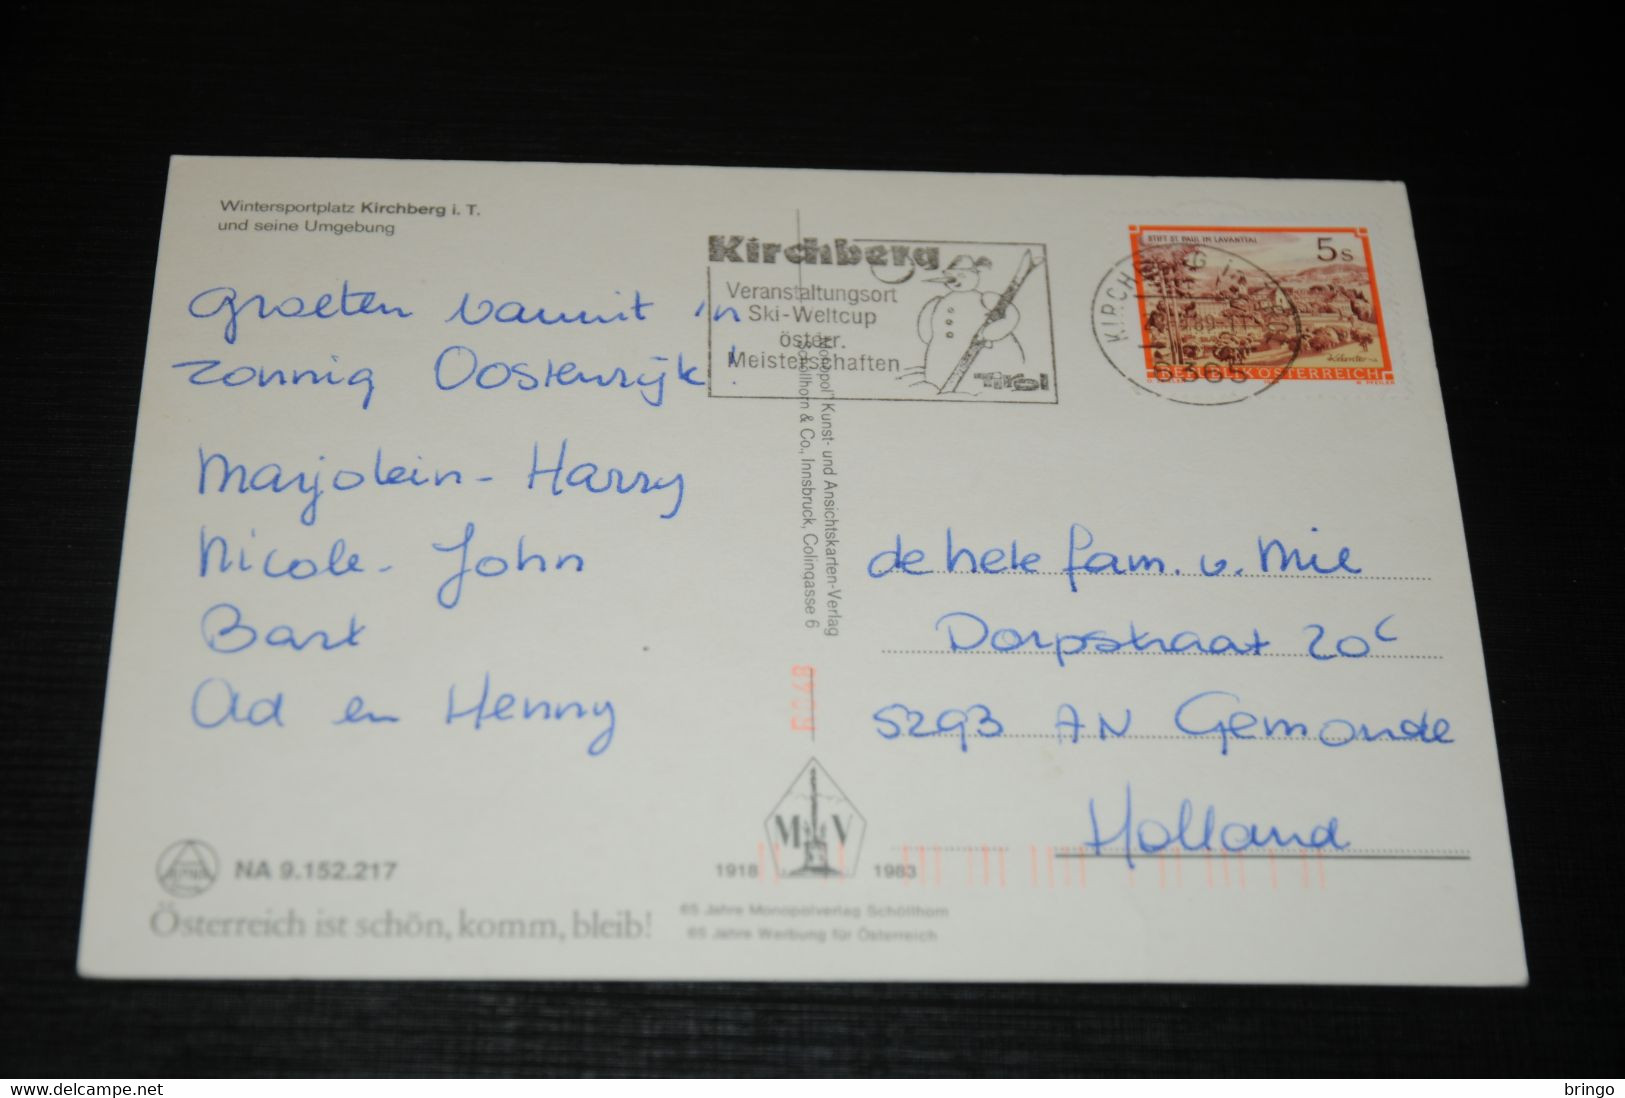 Wintersportplatz Kirchberg i. T.
und seine Umgebung
Groeten vanuit in
zonnig Oostenrijk!
Marjolein - Harry
Nicole - John
Bart
Ad en Henny
Kirchberg
Veranstaltungsort
Ski-Weltcup
österr.
Meisterschaften
Tirol
STIFT ST. PAUL IM LAVANTTAL
5 S
REPUBLIK ÖSTERREICH
6365
"Monopol" Kunst- und Ansichtskarten-Verlag
Schöllhorn & Co., Innsbruck, Colingasse 6
de hele fam. v. Mil
Dorpstraat 20c
5293 AN Gemonde
Holland
M V
1918 1983
65 Jahre Monopolverlag Schöllhorn
65 Jahre Werbung für Österreich
NA 9.152.217
Österreich ist schön, komm, bleib!
www.delcampe.net
bringo